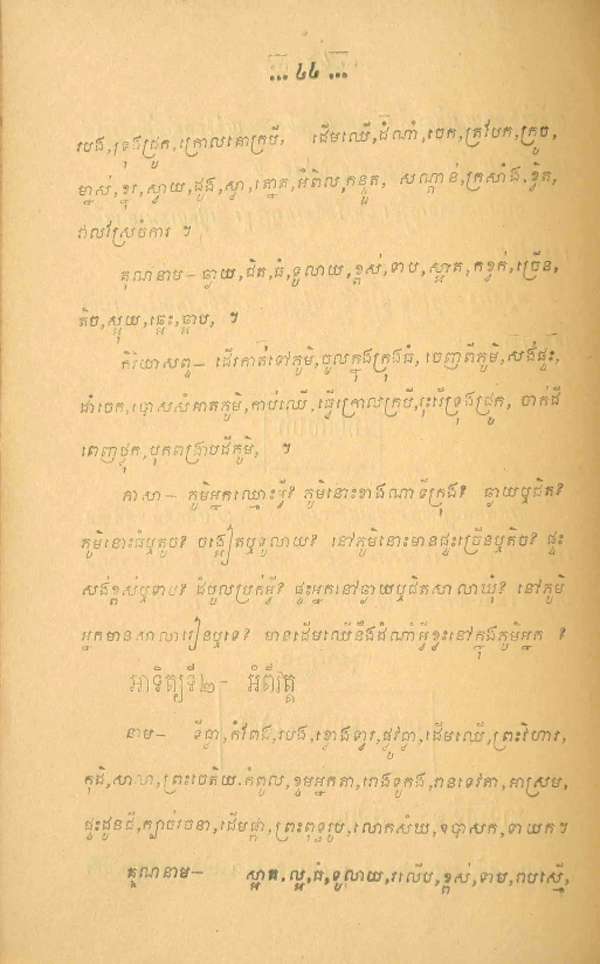 ... ៤៤ ...
របង,ទ្រុងជ្រូក,ក្រោលគោក្របី, ដើមឈើ,ដំណាំ,ចេក,ត្របែក,ក្រូច,
ម្នាស់,ខ្នុរ,ស្វាយ,ដូង,ស្លា,ត្នោត,អំពិល,កន្ទួត, សណ្តាន់,ក្រសាំង,ខ្វិត,
វាលស្រែចំការ ។
គុណនាម- ឆ្ងាយ,ជិត,ធំ,ទូលាយ,ខ្ពស់,ទាប,ស្អាត,កខ្វក់,ច្រើន,
តិច,ស្អុយ,ឆ្អេះ,ឆ្អាប, ។
កិរិយាសព្ទ- ដើរកាត់ទៅភូមិ,ចូលក្នុងក្រុងធំ, ចេញពីភូមិ,សង់ផ្ទះ,
ដាំចេក,បោសសំអាតភូមិ,កាប់ឈើ,ធ្វើក្រោលក្របី,រុះរើទ្រុងជ្រូក, ចាក់ដី
ពេញថ្លុក,បុកពង្រាបដីភូមិ, ។
ភាសា- ភូមិអ្នកឈ្មោះអ្វី? ភូមិនោះខាងណាទីក្រុង? ឆ្ងាយឬជិត?
ភូមិនោះធំឬតូច? ចង្អៀតឬទូលាយ? នៅភូមិនោះមានផ្ទះច្រើនឬតិច? ផ្ទះ
សង់ខ្ពស់ឬទាប? ដំបូលប្រក់អ្វី? ផ្ទះអ្នកនៅឆ្ងាយឬជិតសាលាឃុំ? នៅភូមិ
អ្នកមានសាលារៀនឬទេ? មានដើមឈើនឹងដំណាំអ្វីខ្លះនៅក្នុងភូមិអ្នក ?
អាទិត្យទី២- អំពីវត្ត
នាម- ទីធ្លា,កំពែង,របង,ខ្លោងទ្វារ,ផ្លូវធ្លា,ដើមឈើ,ព្រះវិហារ,
កុដិ,សាលា,ព្រះចេតិយ.កំពូល,ខ្ទមអ្នកតា,រោងទូកង,រានទេវតា,អាស្រម,
ផ្ទះដូនជី,ក្បាច់រចនា,ដើមផ្កា,ព្រះពុទ្ធរូប,លោកសំឃ,ឧបាសក,ទាយក។
គុណនាម- ស្អាត.ល្អ,ធំ,ទូលាយ,រលើប,ខ្ពស់,ទាប,រាបស្មើ,